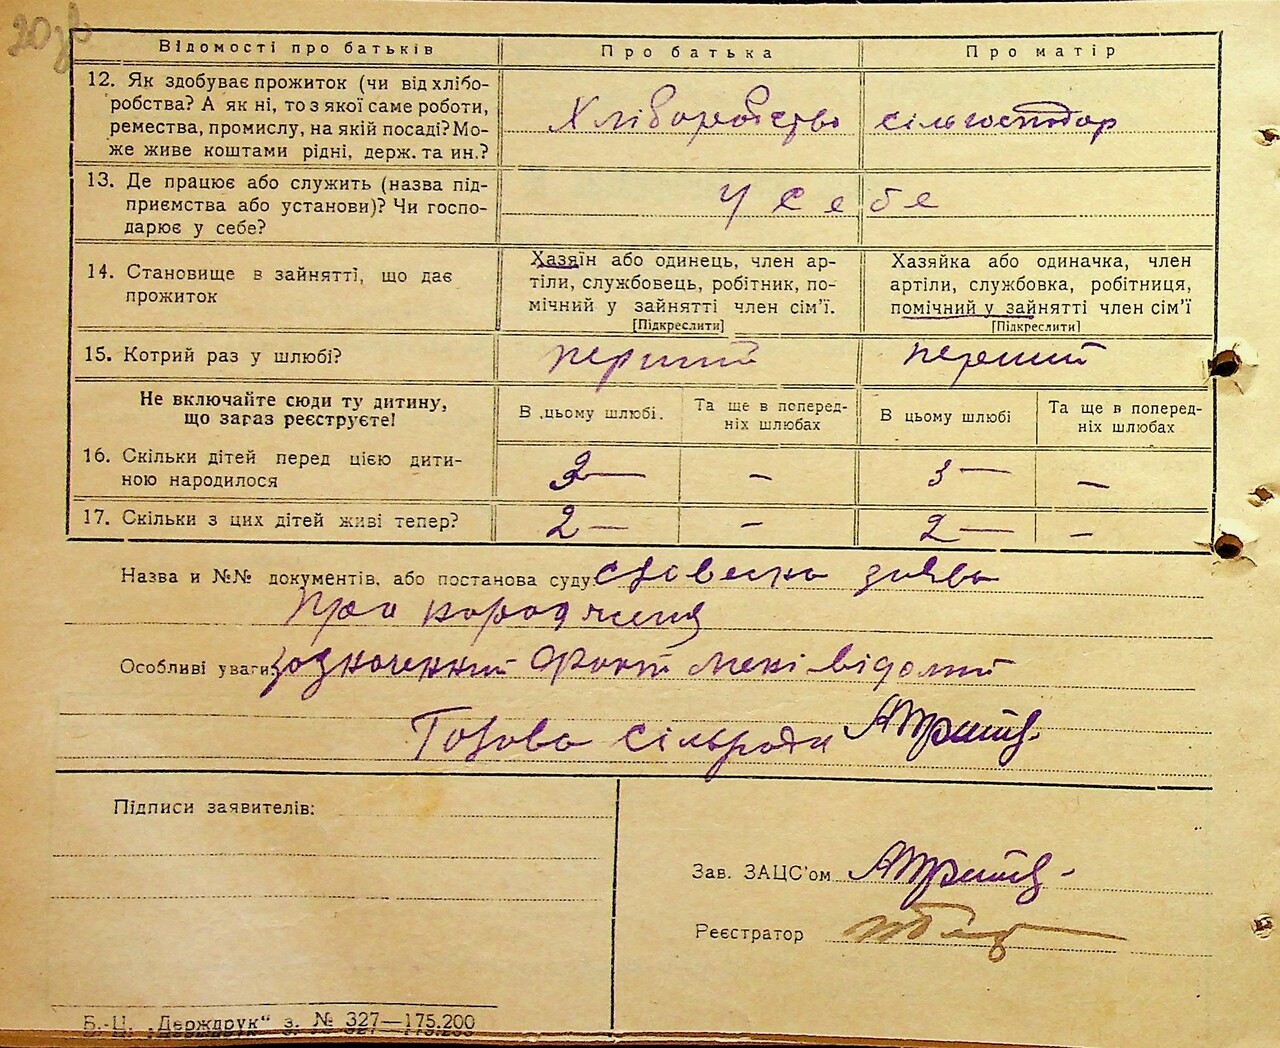 20зв
Відомості про батьків Про батька Про матір
12. Як здобуває прожиток (чи від хлібо-
робства? А як ні, то з якої саме роботи,
ремества, промислу, на якій посаді? Мо-
же живе коштами рідні, держ. та ин.?
Хліборобство сільгосподар
13. Де працює або служить (назва під-
приємства або установи)? Чи госпо-
дарює у себе?
У себе
14. Становище в зайнятті, що дає
прожиток
Хазяїн або одинець, член ар-
тіли, службовець, робітник, по-
мічний у зайнятті член сім'ї.
[Підкреслити]
Хазяйка або одиначка, член
артіли, службовка, робітниця,
помічний у зайнятті член сім'ї
[Підкреслити]
15. Котрий раз у шлюбі? перший перший
Не включайте сюди ту дитину,
що загаз реєструєте!
В цьому шлюбі. Та ще в поперед-
ніх шлюбах
В цьому шлюбі Та ще в поперед-
ніх шлюбах
16. Скільки дітей перед цією дити-
ною народилося
3 — – 3 — –
17. Скільки з цих дітей живі тепер? 2 — – 2 — –
Назва и №№ документів, або постанова суду: словесна заява
про народження
Особливі уваги: зазначений факт мені відомий
Голова сільради
Підписи заявителів:
Зав. ЗАЦС'ом
Реєстратор
Б.-Ц. „Держдрук“ з. № 327—175.200